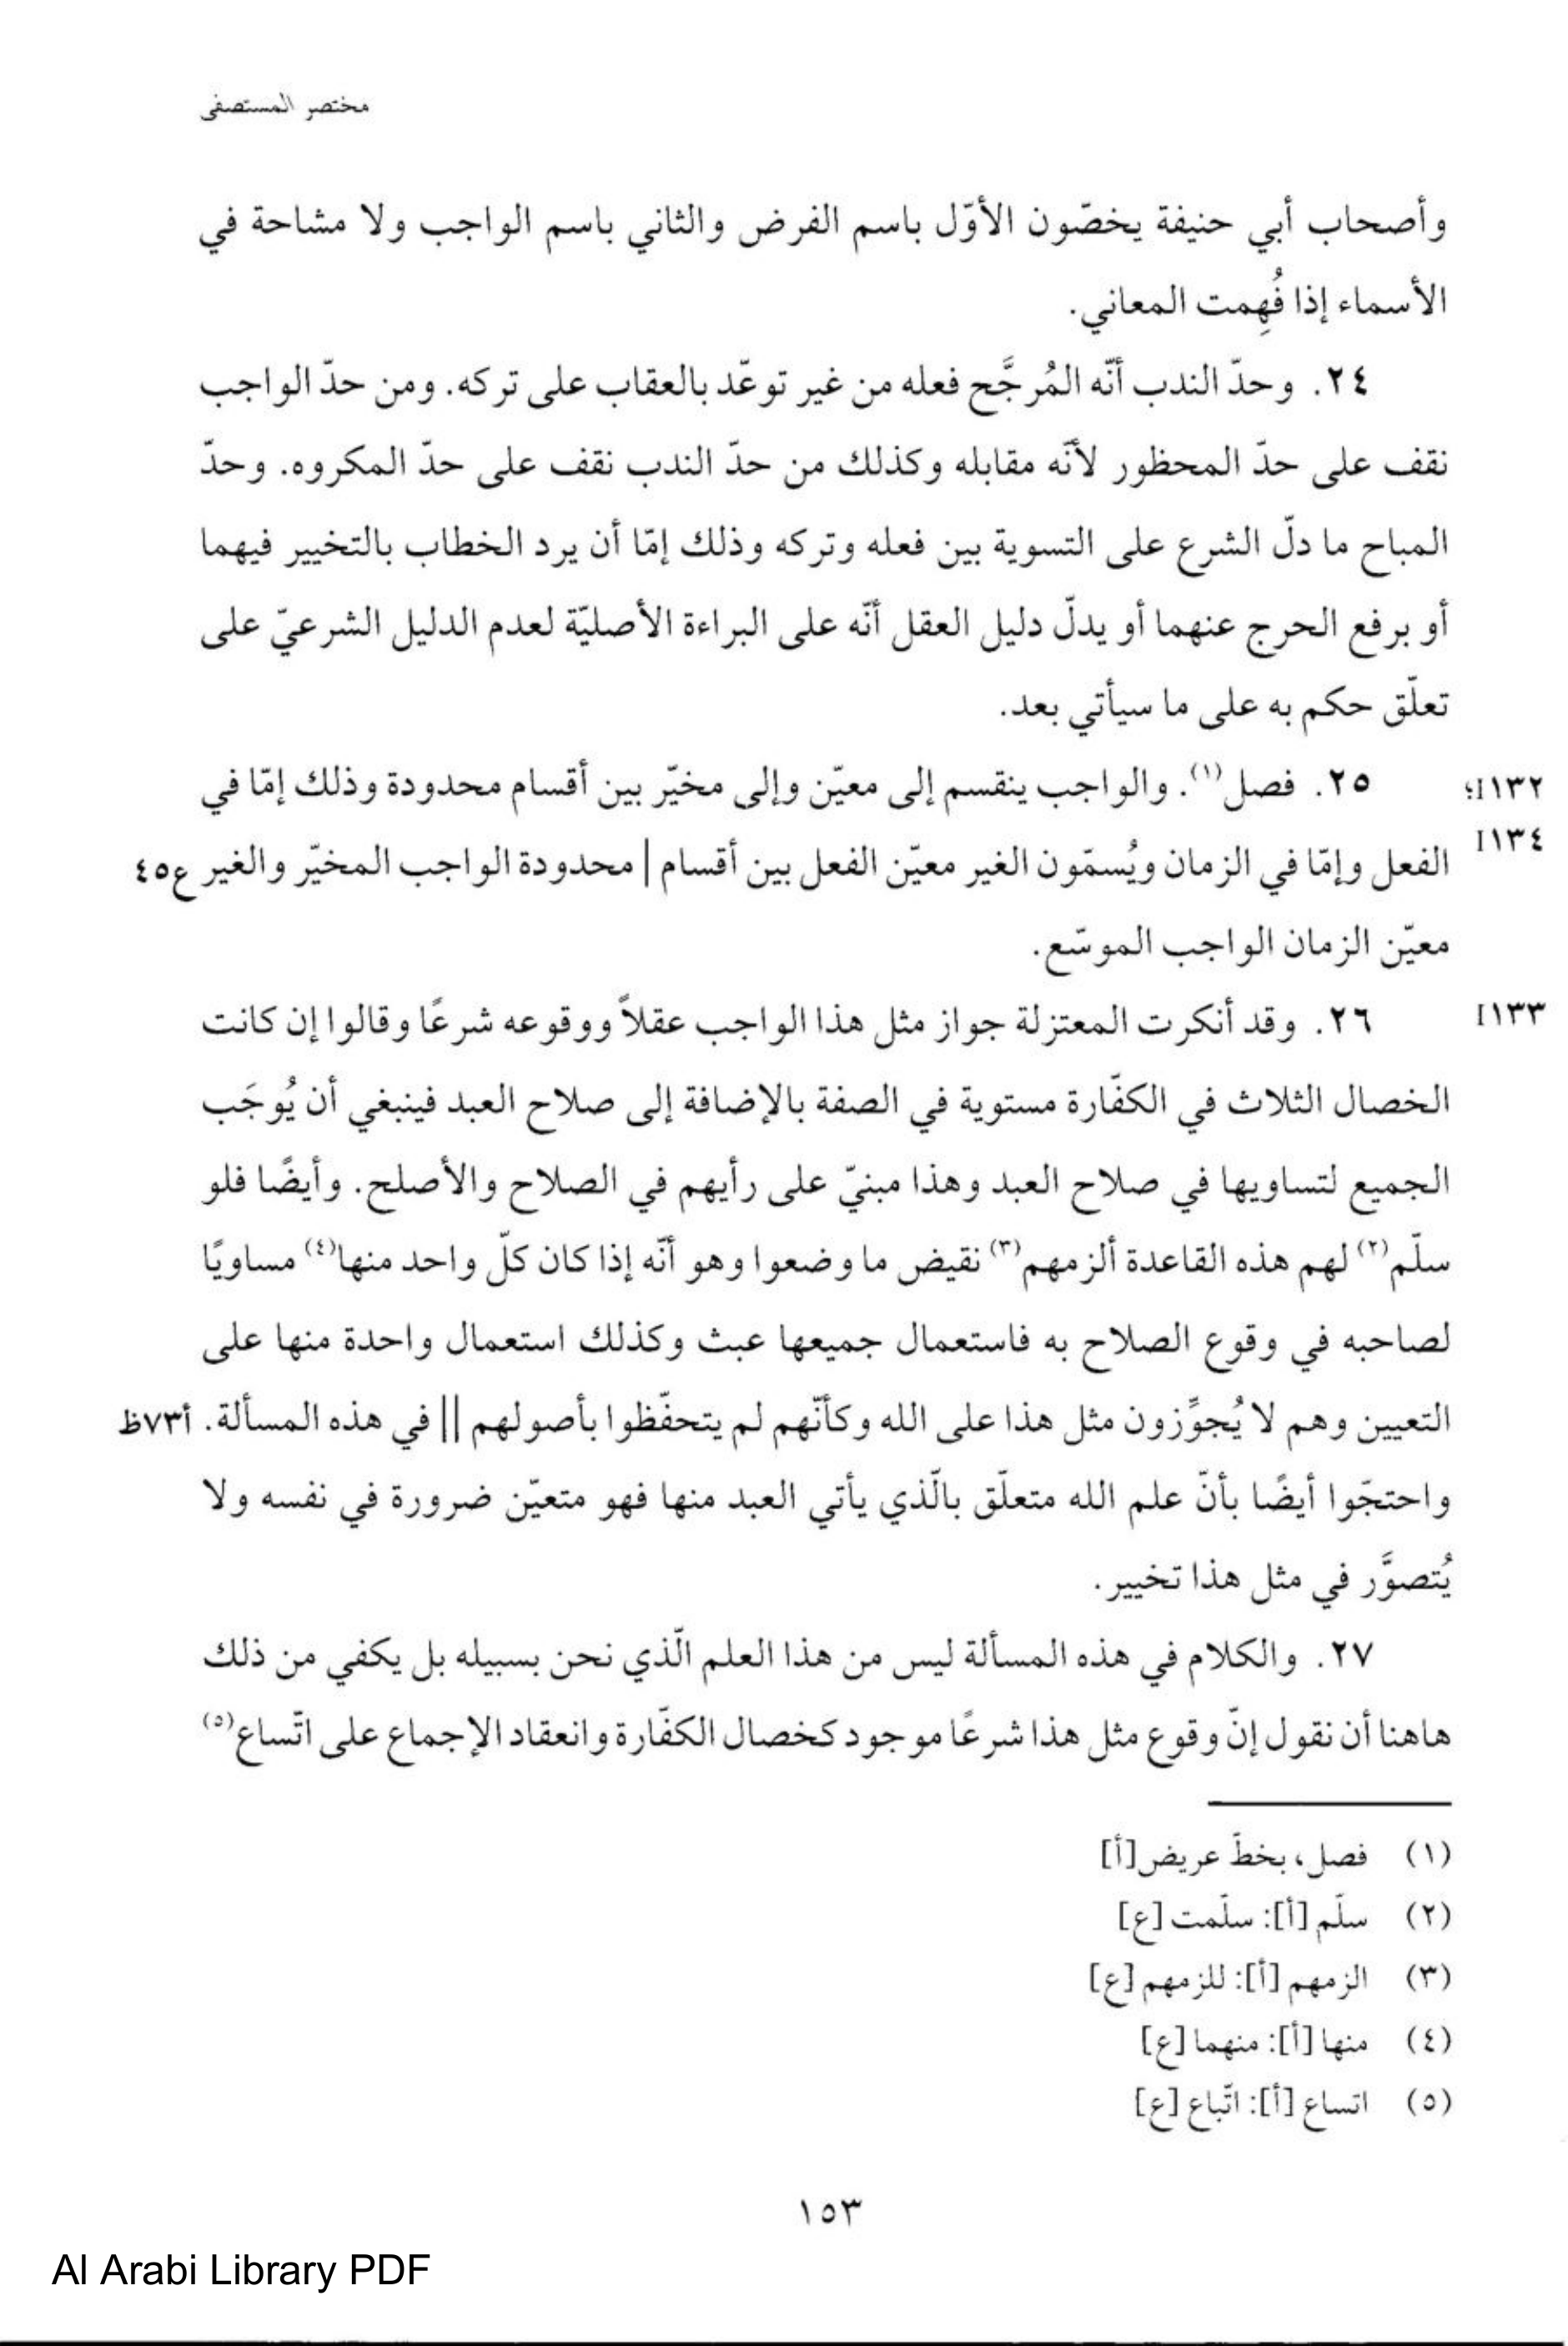 مختصر المستصفى
وأصحاب أبي حنيفة يخصّون الأوّل باسم الفرض والثاني باسم الواجب ولا مشاحة في
الأسماء إذا فُهِمت المعاني.
٢٤. وحدّ الندب أنّه المُرجَّح فعله من غير توعّد بالعقاب على تركه. ومن حدّ الواجب
نقف على حدّ المحظور لأنّه مقابله وكذلك من حدّ الندب نقف على حدّ المكروه. وحدّ
المباح ما دلّ الشرع على التسوية بين فعله وتركه وذلك إمّا أن يرد الخطاب بالتخيير فيهما
أو برفع الحرج عنهما أو يدلّ دليل العقل أنّه على البراءة الأصليّة لعدم الدليل الشرعيّ على
تعلّق حكم به على ما سيأتي بعد.
I١٣٢؛ ٢٥. فصل(١). والواجب ينقسم إلى معيّن وإلى مخيّر بين أقسام محدودة وذلك إمّا في
I١٣٤ الفعل وإمّا في الزمان ويُسمّون الغير معيّن الفعل بين أقسام | محدودة الواجب المخيّر والغير ع٤٥
معيّن الزمان الواجب الموسّع.
I١٣٣ ٢٦. وقد أنكرت المعتزلة جواز مثل هذا الواجب عقلاً ووقوعه شرعًا وقالوا إن كانت
الخصال الثلاث في الكفّارة مستوية في الصفة بالإضافة إلى صلاح العبد فينبغي أن يُوجَب
الجميع لتساويها في صلاح العبد وهذا مبنيّ على رأيهم في الصلاح والأصلح. وأيضًا فلو
سلّم(٢) لهم هذه القاعدة ألزمهم(٣) نقيض ما وضعوا وهو أنّه إذا كان كلّ واحد منها(٤) مساويًا
لصاحبه في وقوع الصلاح به فاستعمال جميعها عبث وكذلك استعمال واحدة منها على
التعيين وهم لا يُجوِّزون مثل هذا على الله وكأنّهم لم يتحفّظوا بأصولهم || في هذه المسألة. أ٧٣ظ
واحتجّوا أيضًا بأنّ علم الله متعلّق بالّذي يأتي العبد منها فهو متعيّن ضرورة في نفسه ولا
يُتصوَّر في مثل هذا تخيير.
٢٧. والكلام في هذه المسألة ليس من هذا العلم الّذي نحن بسبيله بل يكفي من ذلك
هاهنا أن نقول إنّ وقوع مثل هذا شرعًا موجود كخصال الكفّارة وانعقاد الإجماع على اتّساع(٥)
(١) فصل، بخطّ عريض[أ]
(٢) سلّم [أ]: سلّمت [ع]
(٣) الزمهم [أ]: للزمهم [ع]
(٤) منها [أ]: منهما [ع]
(٥) اتساع [أ]: اتّباع [ع]
١٥٣
Al Arabi Library PDF